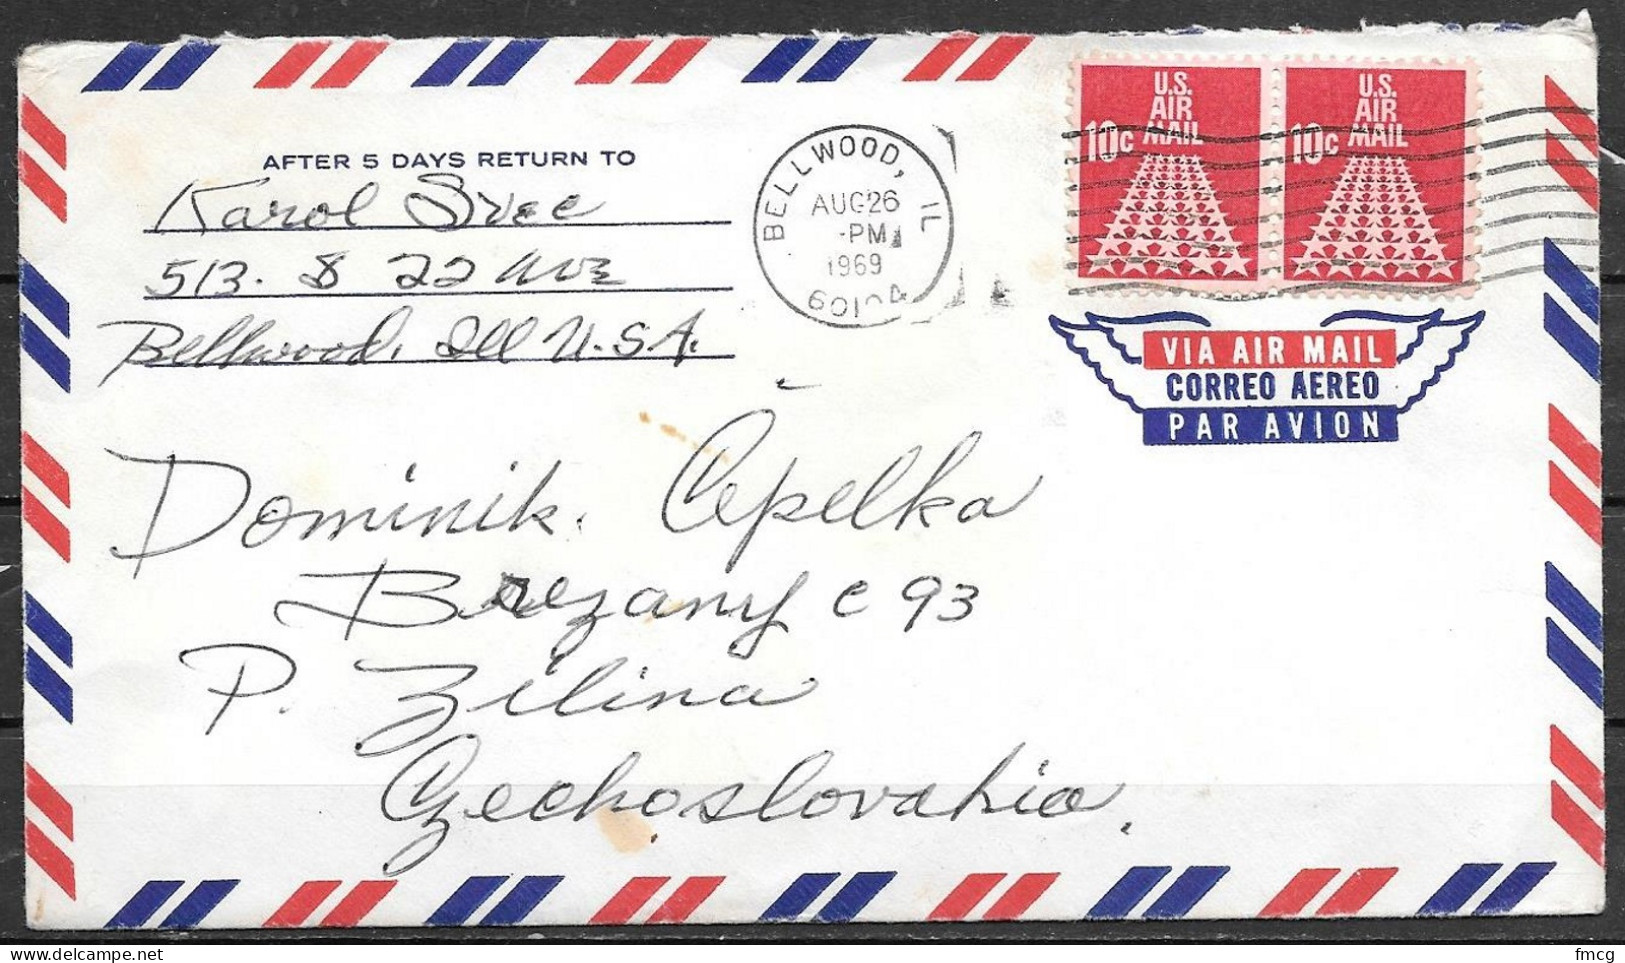 AFTER 5 DAYS RETURN TO
Karol Svec
513. S 22 Ave
Bellwood, Ill U.S.A.
BELLWOOD, IL
AUG 26
-PM
1969
60104
U.S.
AIR
MAIL
10c
U.S.
AIR
MAIL
10c
VIA AIR MAIL
CORREO AEREO
PAR AVION
Dominik. Čepelka
Brezany c 93
P. Zilina
Czechoslovakia.
fmcg